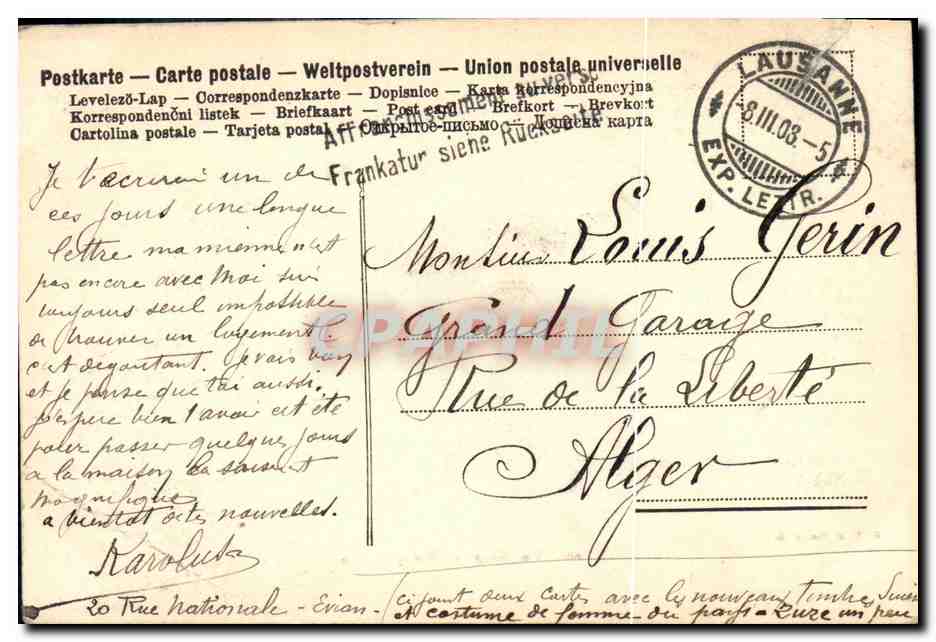 Postkarte — Carte postale — Weltpostverein — Union postale universelle
Levelező-Lap — Correspondenzkarte — Dopisnice — Karta korrespondencyjna
Korrespondenční listek — Briefkaart — Post card — Brefkort — Brevkort
Cartolina postale — Tarjeta postal — Открытое письмо — Дописна карта
Affranchissement au verso
Frankatur siehe Rückseite
LAUSANNE
8.III.08.-5
EXP. LETTR.
Je t'écrirai un de
ces jours une longue
lettre ma mienne n'est
pas encore avec moi suis
toujours seul impossible
de trouver un logement
c'est dégoutant. Je vais bien
et je pense que toi aussi.
J'espère bien t'avoir cet été
pour passer quelques jours
a la maison la saison est
magnifique
a bientot de tes nouvelles.
Karolus
20 Rue Nationale - Evian -
ci joint deux cartes avec les nouveaux timbres
et costume de femme du pays - un peu
Monsieur Louis Gerin
Grand Garage
Rue de la Liberté
Alger
CPAPHIL